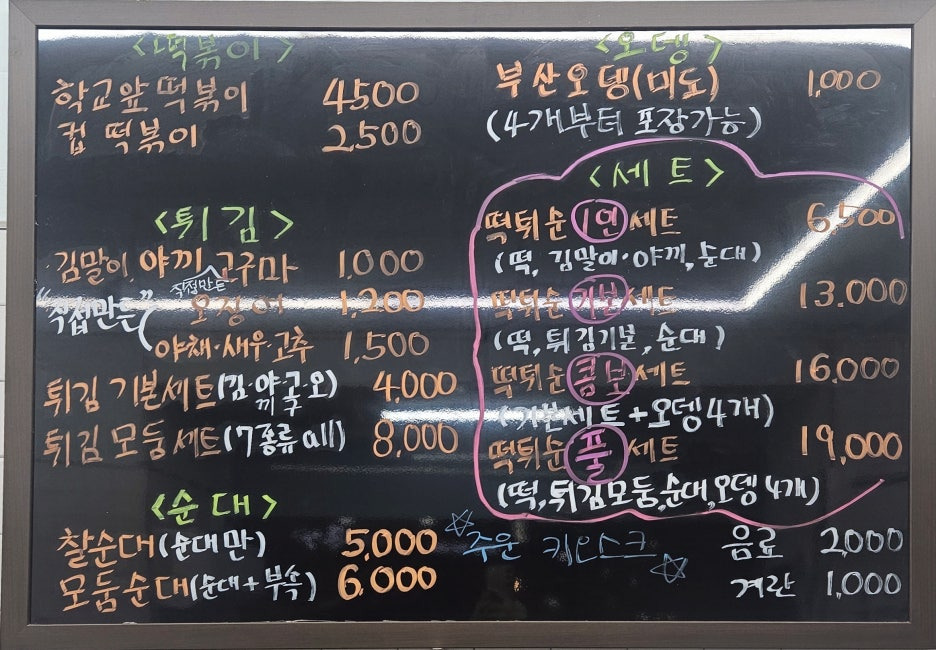 <떡볶이>
학교앞 떡볶이 4500
컵 떡볶이 2,500
<튀김>
김말이, 야끼, 고구마 1,000
직접만든
"직접만든" 오징어 1,200
야채·새우·고추 1,500
튀김 기본세트(김·야끼·고구·오) 4,000
튀김 모둠세트(7종류 all) 8,000
<순대>
찰순대(순대만) 5,000
모둠순대(순대+부속) 6,000
<오뎅>
부산오뎅(미도) 1,000
(4개부터 포장가능)
<세트>
떡튀순 1인 세트 6,500
(떡, 김말이·야끼, 순대)
떡튀순 기본 세트 13.000
(떡, 튀김기본, 순대)
떡튀순 콤보 세트 16,000
(기본세트+오뎅4개)
떡튀순 풀 세트 19,000
(떡, 튀김모둠, 순대, 오뎅 4개)
☆주문 키오스크☆
음료 2,000
계란 1,000